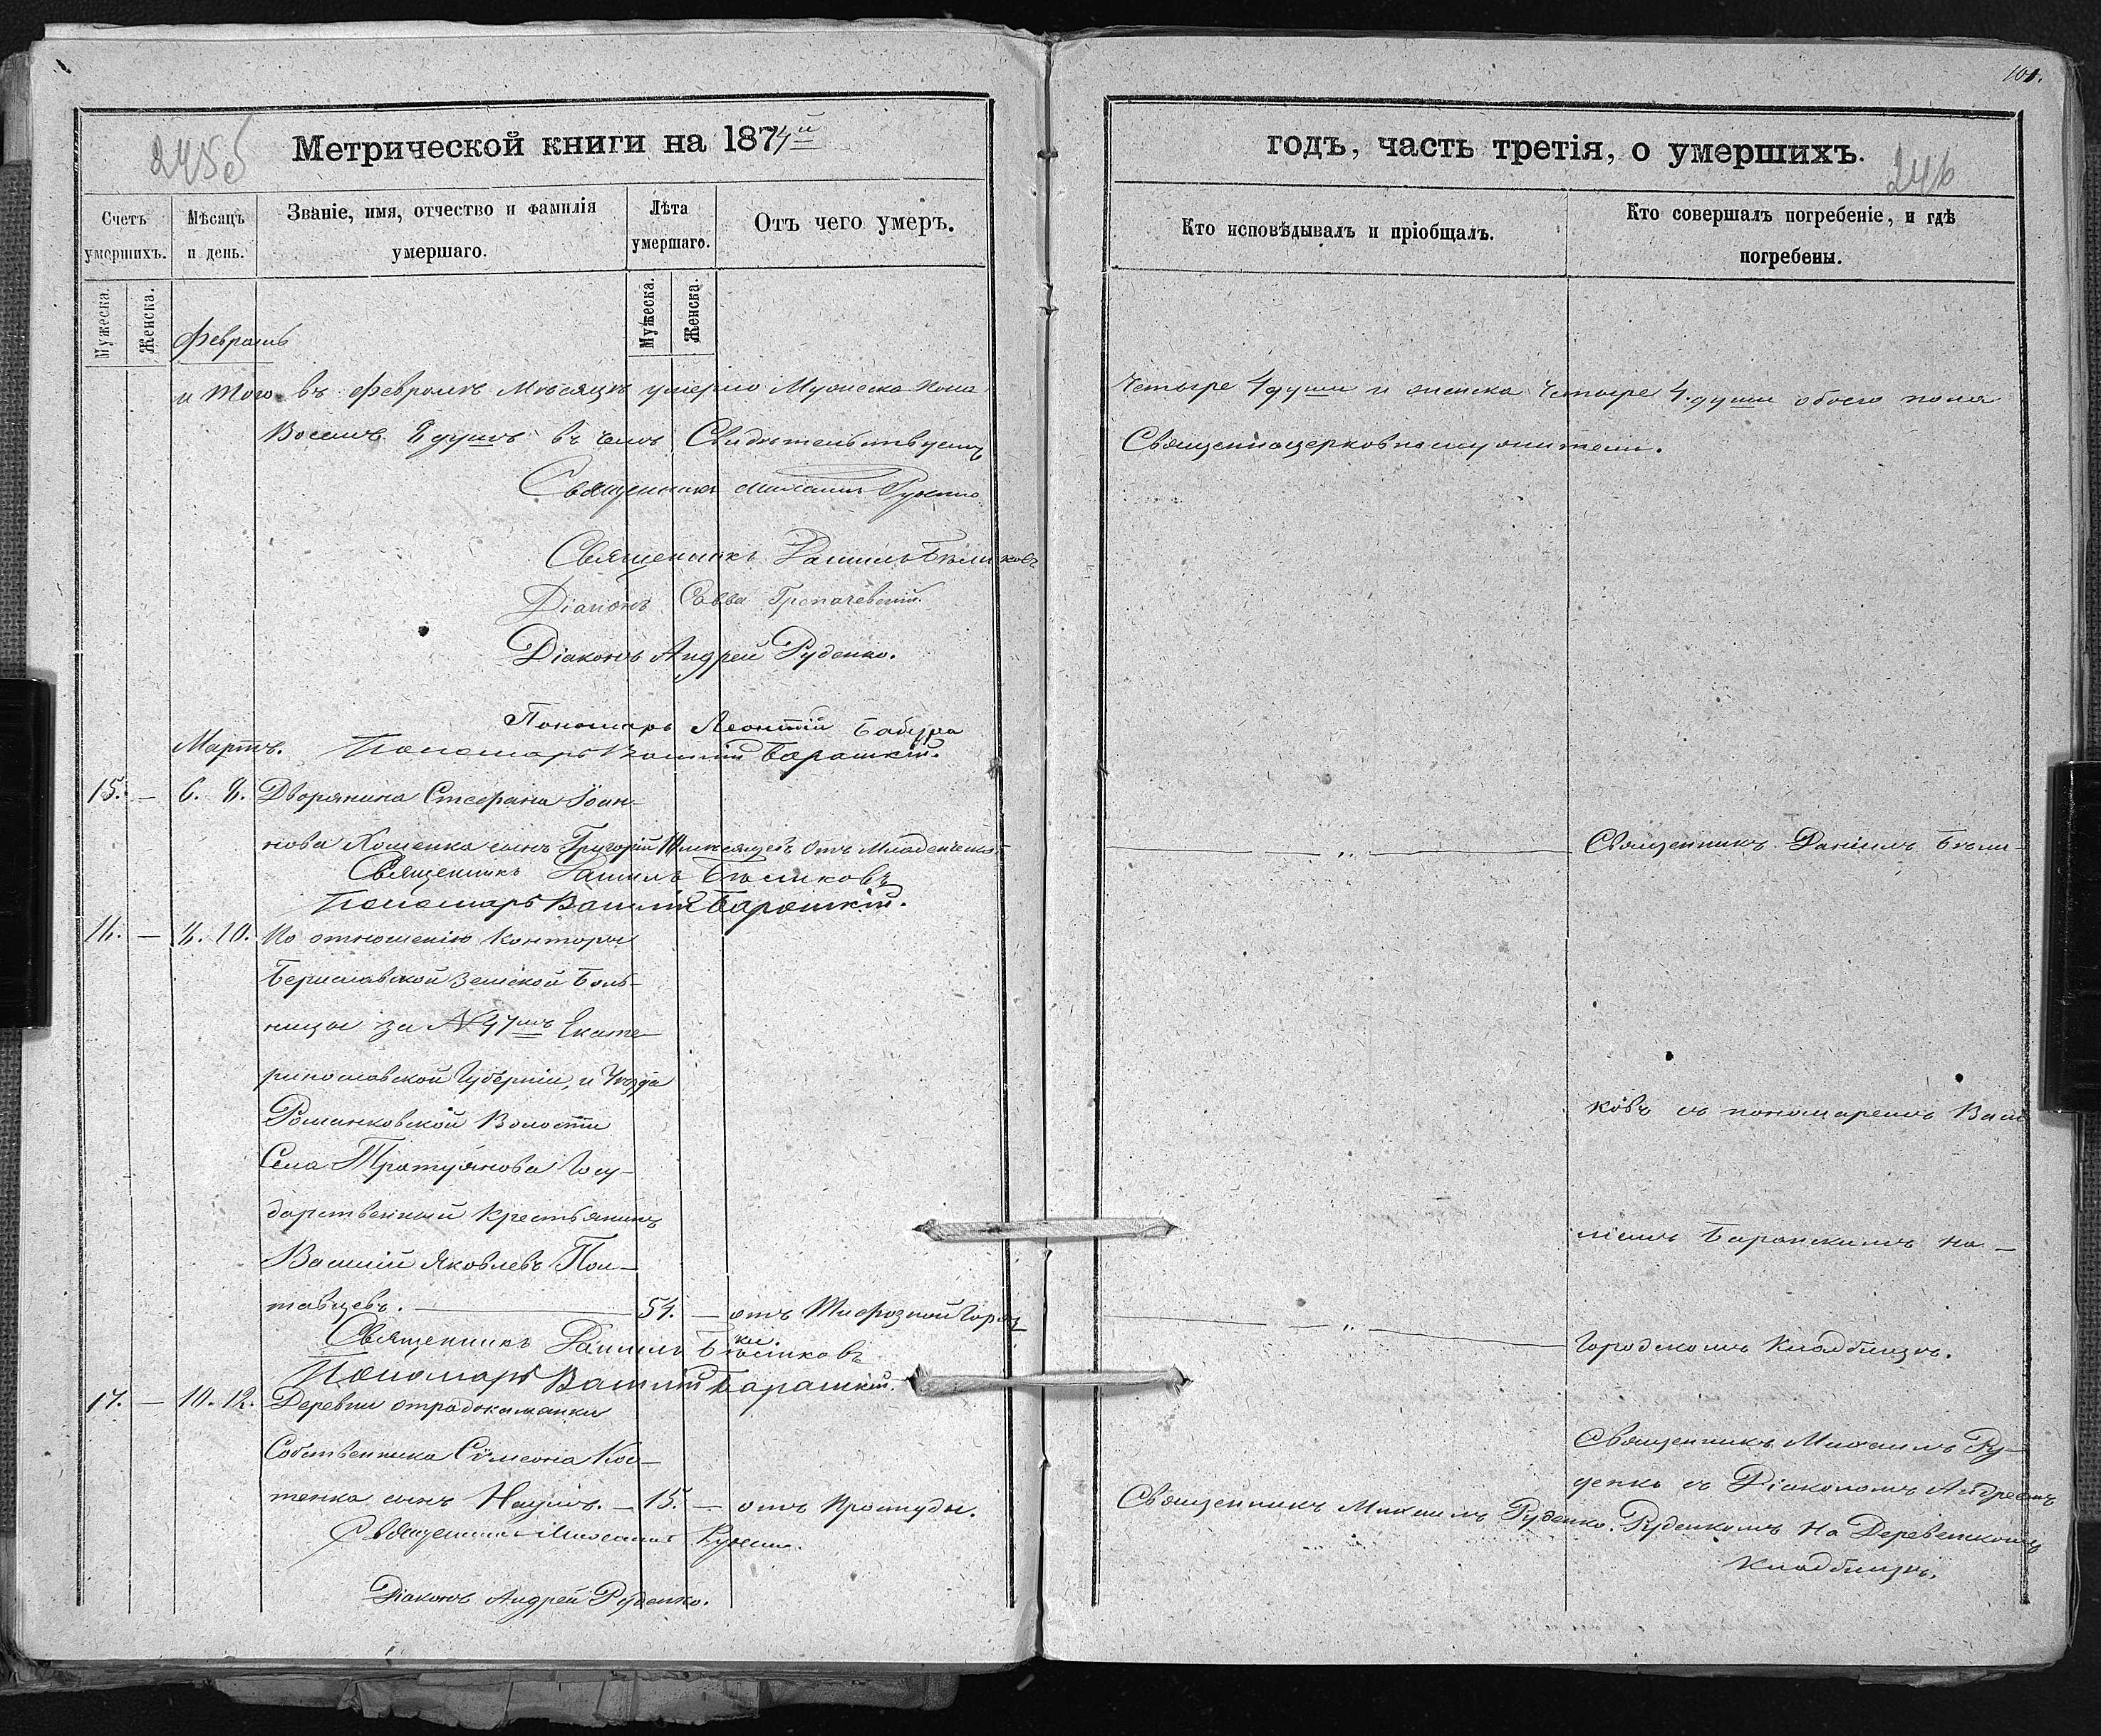 101.
245об
Метрической книги на 1874й
годъ, часть третія, о умершихъ.
246
Счетъ умершихъ.
Мѣсяцъ и день.
Званіе, имя, отчество и фамилія умершаго.
Лѣта умершаго.
Отъ чего умеръ.
Кто исповѣдывалъ и пріобщалъ.
Кто совершалъ погребеніе, и гдѣ погребены.
Мужеска.
Женска.
Мужеска.
Женска.
Февраль
и того въ Февралѣ Мѣсяцѣ умерло Мужеска пола
четыре 4 души и женска четыре 4. души обоего пола
Восемь 8 душъ въ чемъ Свидѣтельствуемъ
Священноцерковнослужители.
Священникъ Михаилъ Руденко
Священникъ Даніилъ Бѣликовъ
Діаконъ Савва
Діаконъ Андрей Руденко.
Пономарь Леонтій Бабура
Мартъ.
Пономарь Василій Барашкій.
15. — 6. 8. Дворянина Стефана Іоан-
нова Хоменка сынъ Григорій 10 мѣсяцевъ Отъ Младенческой
Священникъ Даніилъ Бѣли-
Священникъ Даніилъ Бѣликовъ
Пономарь Василій Барашкій.
16. — 8. 10. По отношенію Конторы
Бериславской Земской Боль-
ницы за № 47мъ Екате-
ринославской Губерніи, и Уѣзда
Романковской Волости
ковъ съ пономаремъ Васи
Села Тритузнова Госу-
дарственный Крестьянинъ
Василій Яковлевъ Пол-
ліемъ Барашкимъ на —
тавцевъ. — 54. — отъ Тифозной Горяч
ки.
Священникъ Даніилъ Бѣликовъ
Городскомъ Кладбищѣ.
Пономарь Василій Барашкій.
17. — 10. 12. Деревни отрадокаменки
Собственника Сѵмеона Кос-
тенка сынъ Наумъ. — 15. — отъ Простуды.
Священникъ Михаилъ Руденко.
Священникъ Михаилъ Ру-
денко съ Діакономъ Андреемъ
Руденкомъ На Деревенскомъ
Кладбищѣ.
Священникъ Михаилъ Руденко
Діаконъ Андрей Руденко.